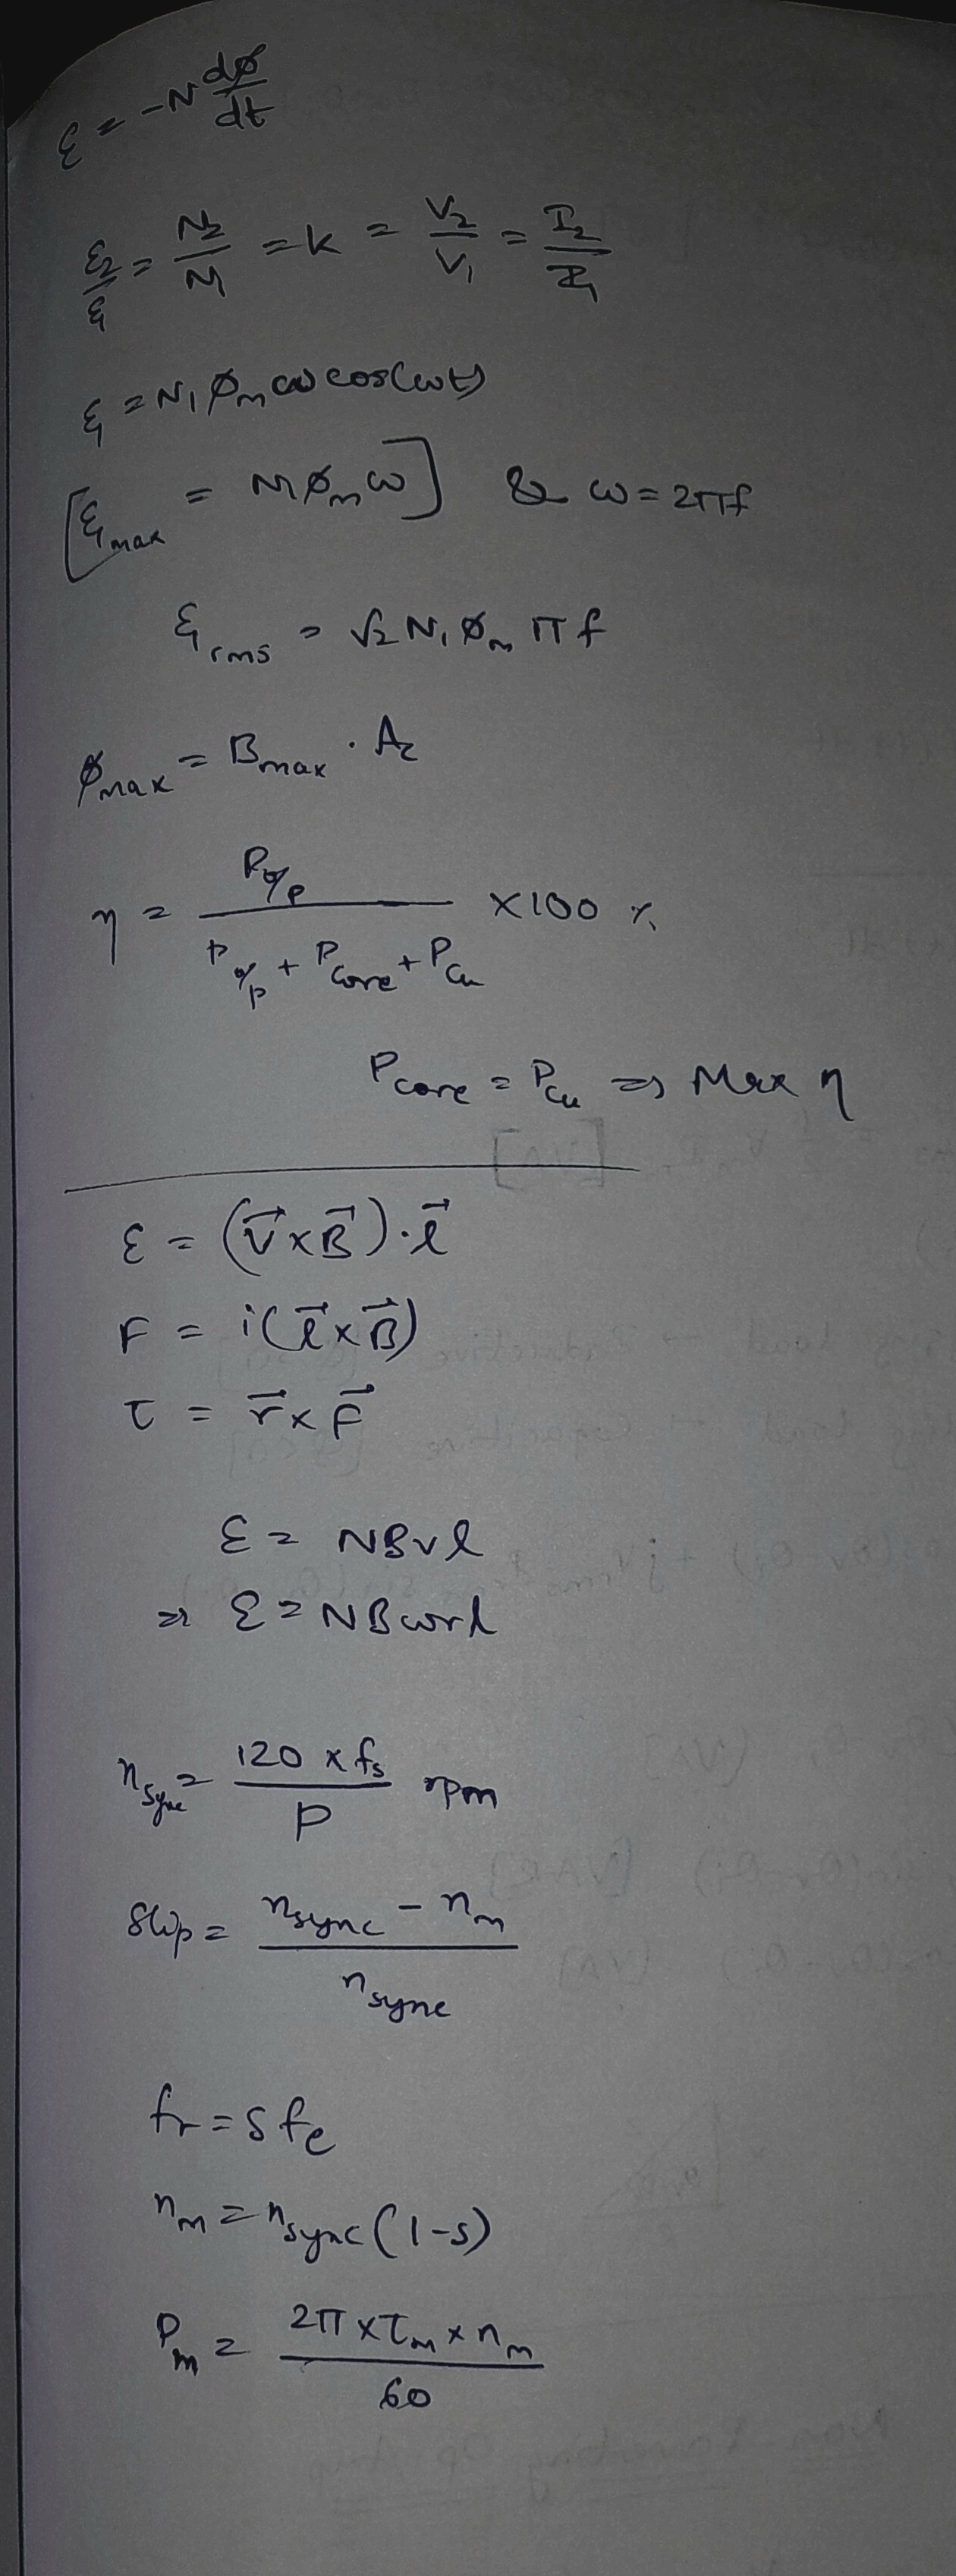 ε = -N dφ/dt
ε₂/ε₁ = N₂/N₁ = K = V₂/V₁ = I₂/I₁
ε₁ = N₁ φm ω cos(ωt)
[ε₁max = N₁ φm ω] & ω = 2πf
ε₁rms = √2 N₁ φm π f
φmax = Bmax · Ac
η = Po/p / (Po/p + Pcore + Pcu) × 100 %
Pcore = Pcu ⇒ Max η
ε = (v⃗ × B⃗) · l⃗
F = i(l⃗ × B⃗)
τ = r⃗ × F⃗
ε = NBvl
⇒ ε = NBωrl
nsync = 120 × fs / P rpm
Slip = (nsync - nm) / nsync
fr = s fe
nm = nsync (1-s)
Pm = 2π × τm × nm / 60